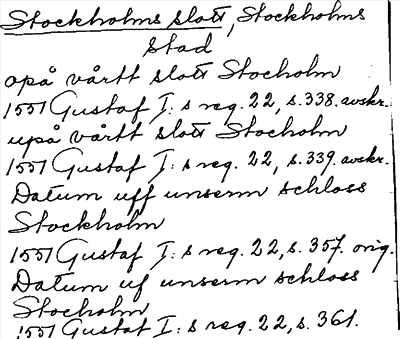 Stockholms slott, Stockholms
stad
opå vårtt slott Stocholm
1551 Gustaf I: s reg. 22, s. 338. avskr.
upå vårtt slott Stocholm
1551 Gustaf I: s reg. 22, s. 339. avskr.
Datum uff unserm schloss
Stockholm
1551 Gustaf I: s reg. 22, s. 357. orig.
Datum uf unserm schloss
Stocholm
1551 Gustaf I: s reg. 22, s. 361.